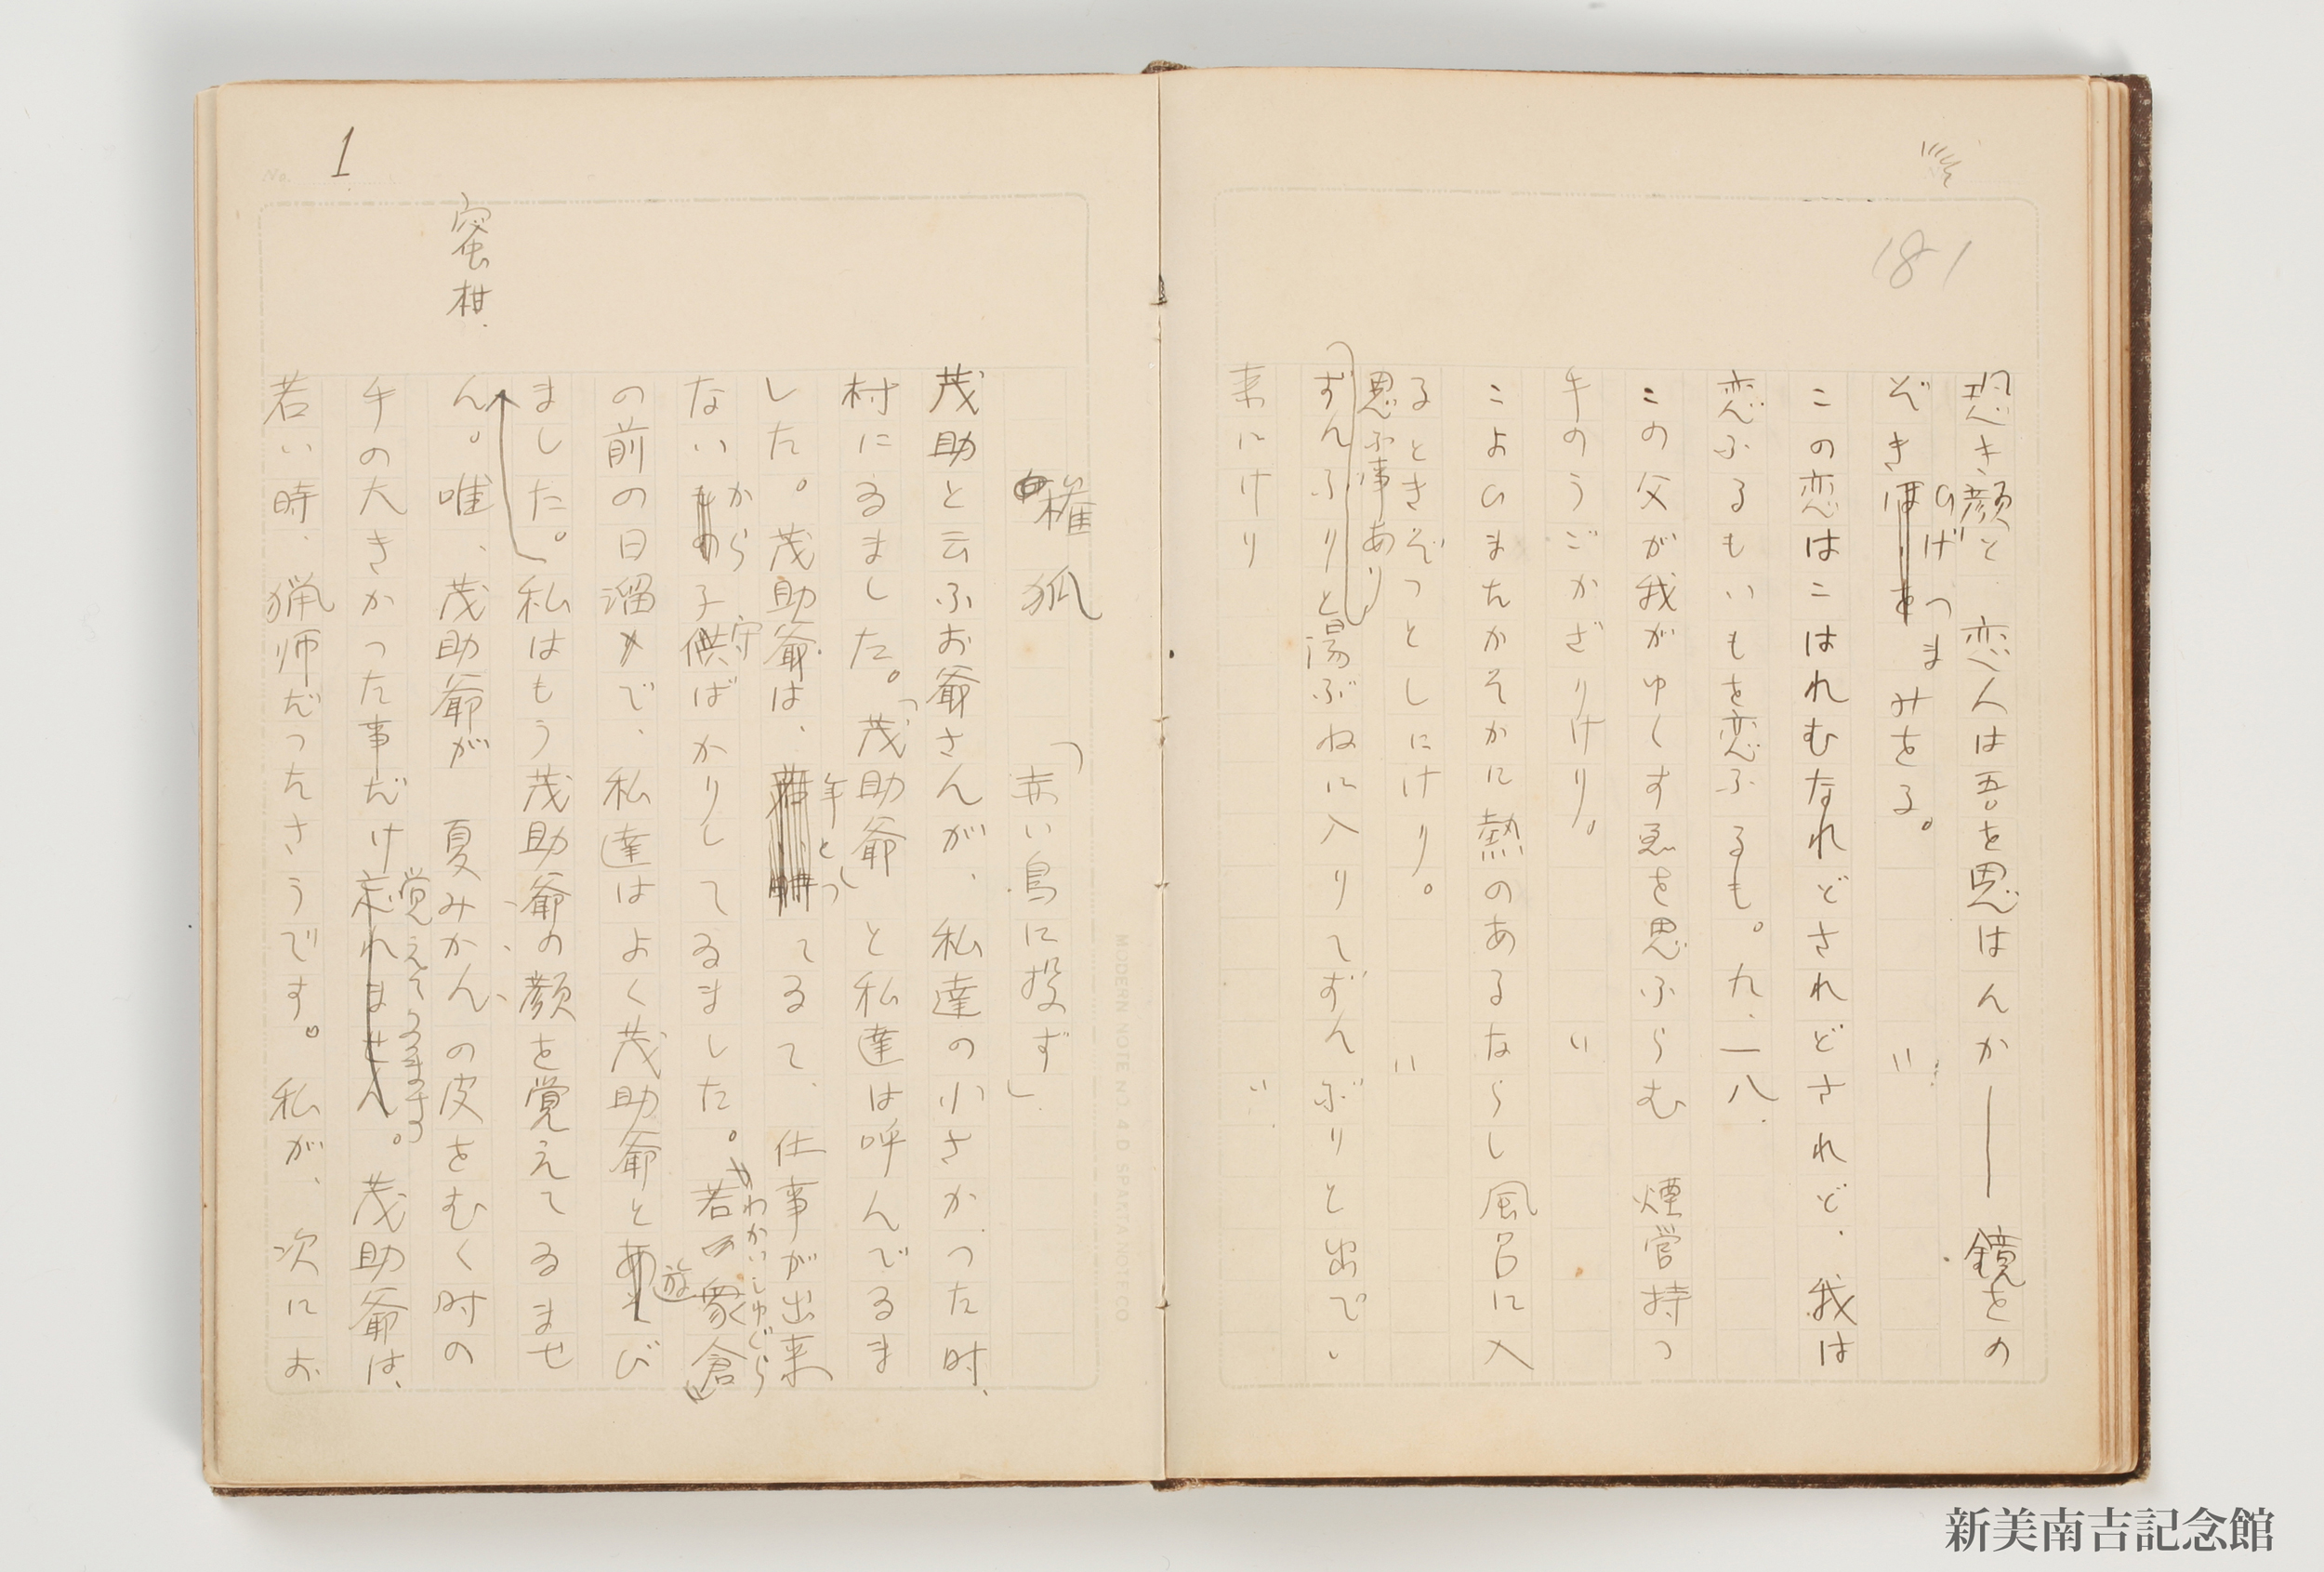 181
恐き顔と 恋人は吾を思はんか――鏡をの
ぞき ひげつまみをる。 〃
この恋はこはれむなれどされどされど、我は
恋ふるもいもを恋ふるも。九、一八、
この父が我がゆくすゑを思ふらむ 煙管持つ
手のうごかざりけり。 〃
こよひまたかそかに熱のあるならし風呂に入
るときぞつとしにけり。 〃
思ふ事あり
ずんぶりと湯ぶねに入りてずんぶりと出でい
来にけり 〃
1
権狐
「赤い鳥に投ず」
茂助と云ふお爺さんが、私達の小さかつた時、
村にゐました。「茂助爺」と私達は呼んでゐま
した。茂助爺は、年とつてゐて、仕事が出来
ないから子守ばかりしてゐました。若衆倉
わかいしゆぐら
の前の日溜で、私達はよく茂助爺と遊び
ました。私はもう茂助爺の顔を覚えてゐませ
蜜柑
ん。唯、茂助爺が 夏みかんの皮をむく時の
手の大きかつた事だけ覚えてゐます。茂助爺は、
若い時、猟師だつたさうです。私が、次にお
MODERN NOTE NO 4 D SPARTA NOTE CO
No.
新美南吉記念館